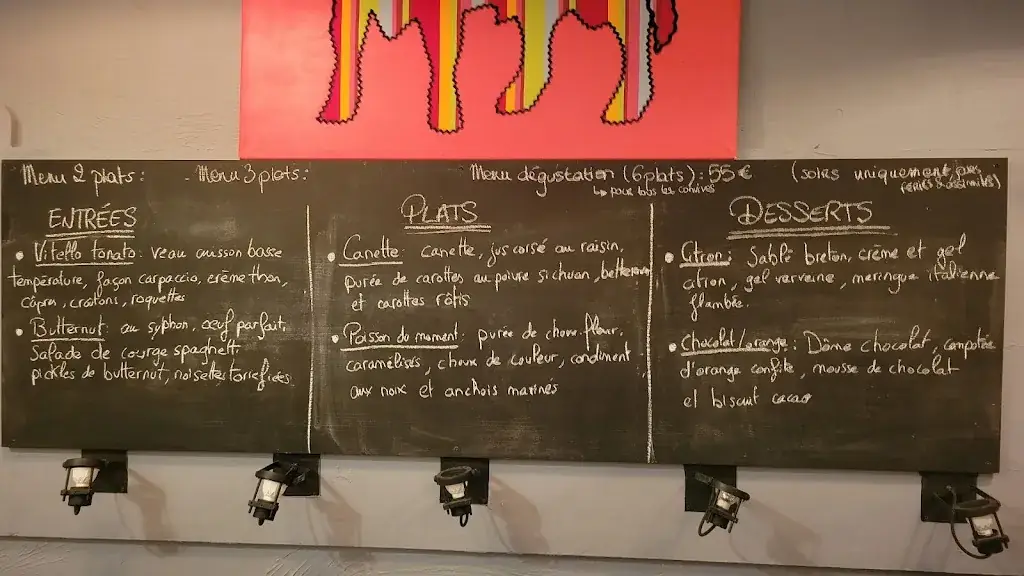 Menu 2 plats :
Menu 3 plats :
Menu dégustation (6 plats) : 55 €
↳ pour tous les convives
(soirs uniquement,
ENTRÉES
• Vitello tonato : veau cuisson basse
température, façon carpaccio, crème thon,
câpres, croûtons, roquettes
• Butternut : au syphon, œuf parfait,
salade de courge spaghetti
pickles de butternut, noisettes torréfiées
PLATS
• Canette : canette, jus corsé au raisin,
purée de carottes au poivre sichuan, betterave
et carottes rôtis
• Poisson du moment : purée de choux fleur,
caramélisés, choux de couleur, condiment
aux noix et anchois marinés
DESSERTS
• Citron : Sablé breton, crème et gel
citron, gel verveine, meringue italienne
flambée.
• Chocolat/orange : Dôme chocolat, compotée
d'orange confite, mousse de chocolat
et biscuit cacao